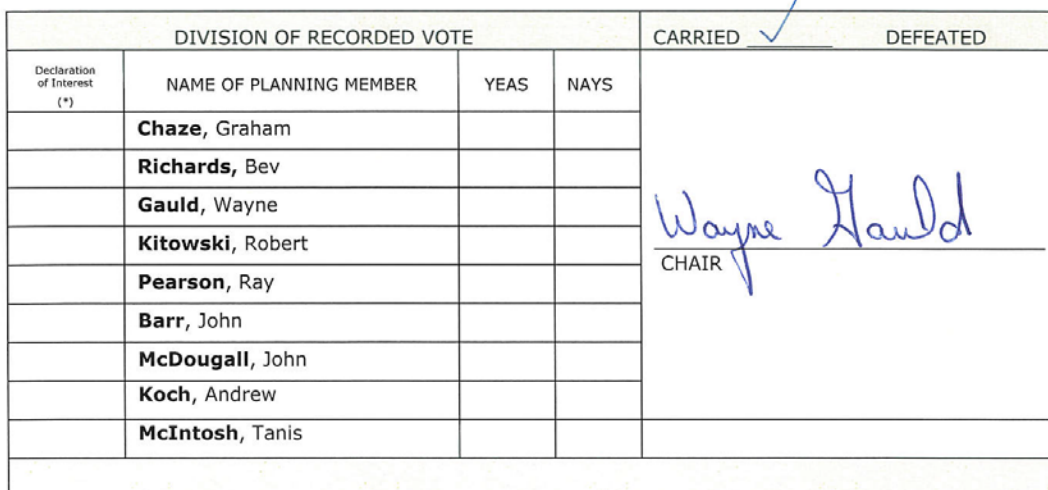 DIVISION OF RECORDED VOTE
CARRIED ✓ DEFEATED
Declaration
of Interest
(*)
NAME OF PLANNING MEMBER
YEAS
NAYS
Chaze, Graham
Richards, Bev
Gauld, Wayne
Kitowski, Robert
Pearson, Ray
Barr, John
McDougall, John
Koch, Andrew
McIntosh, Tanis
Wayne Gauld
CHAIR